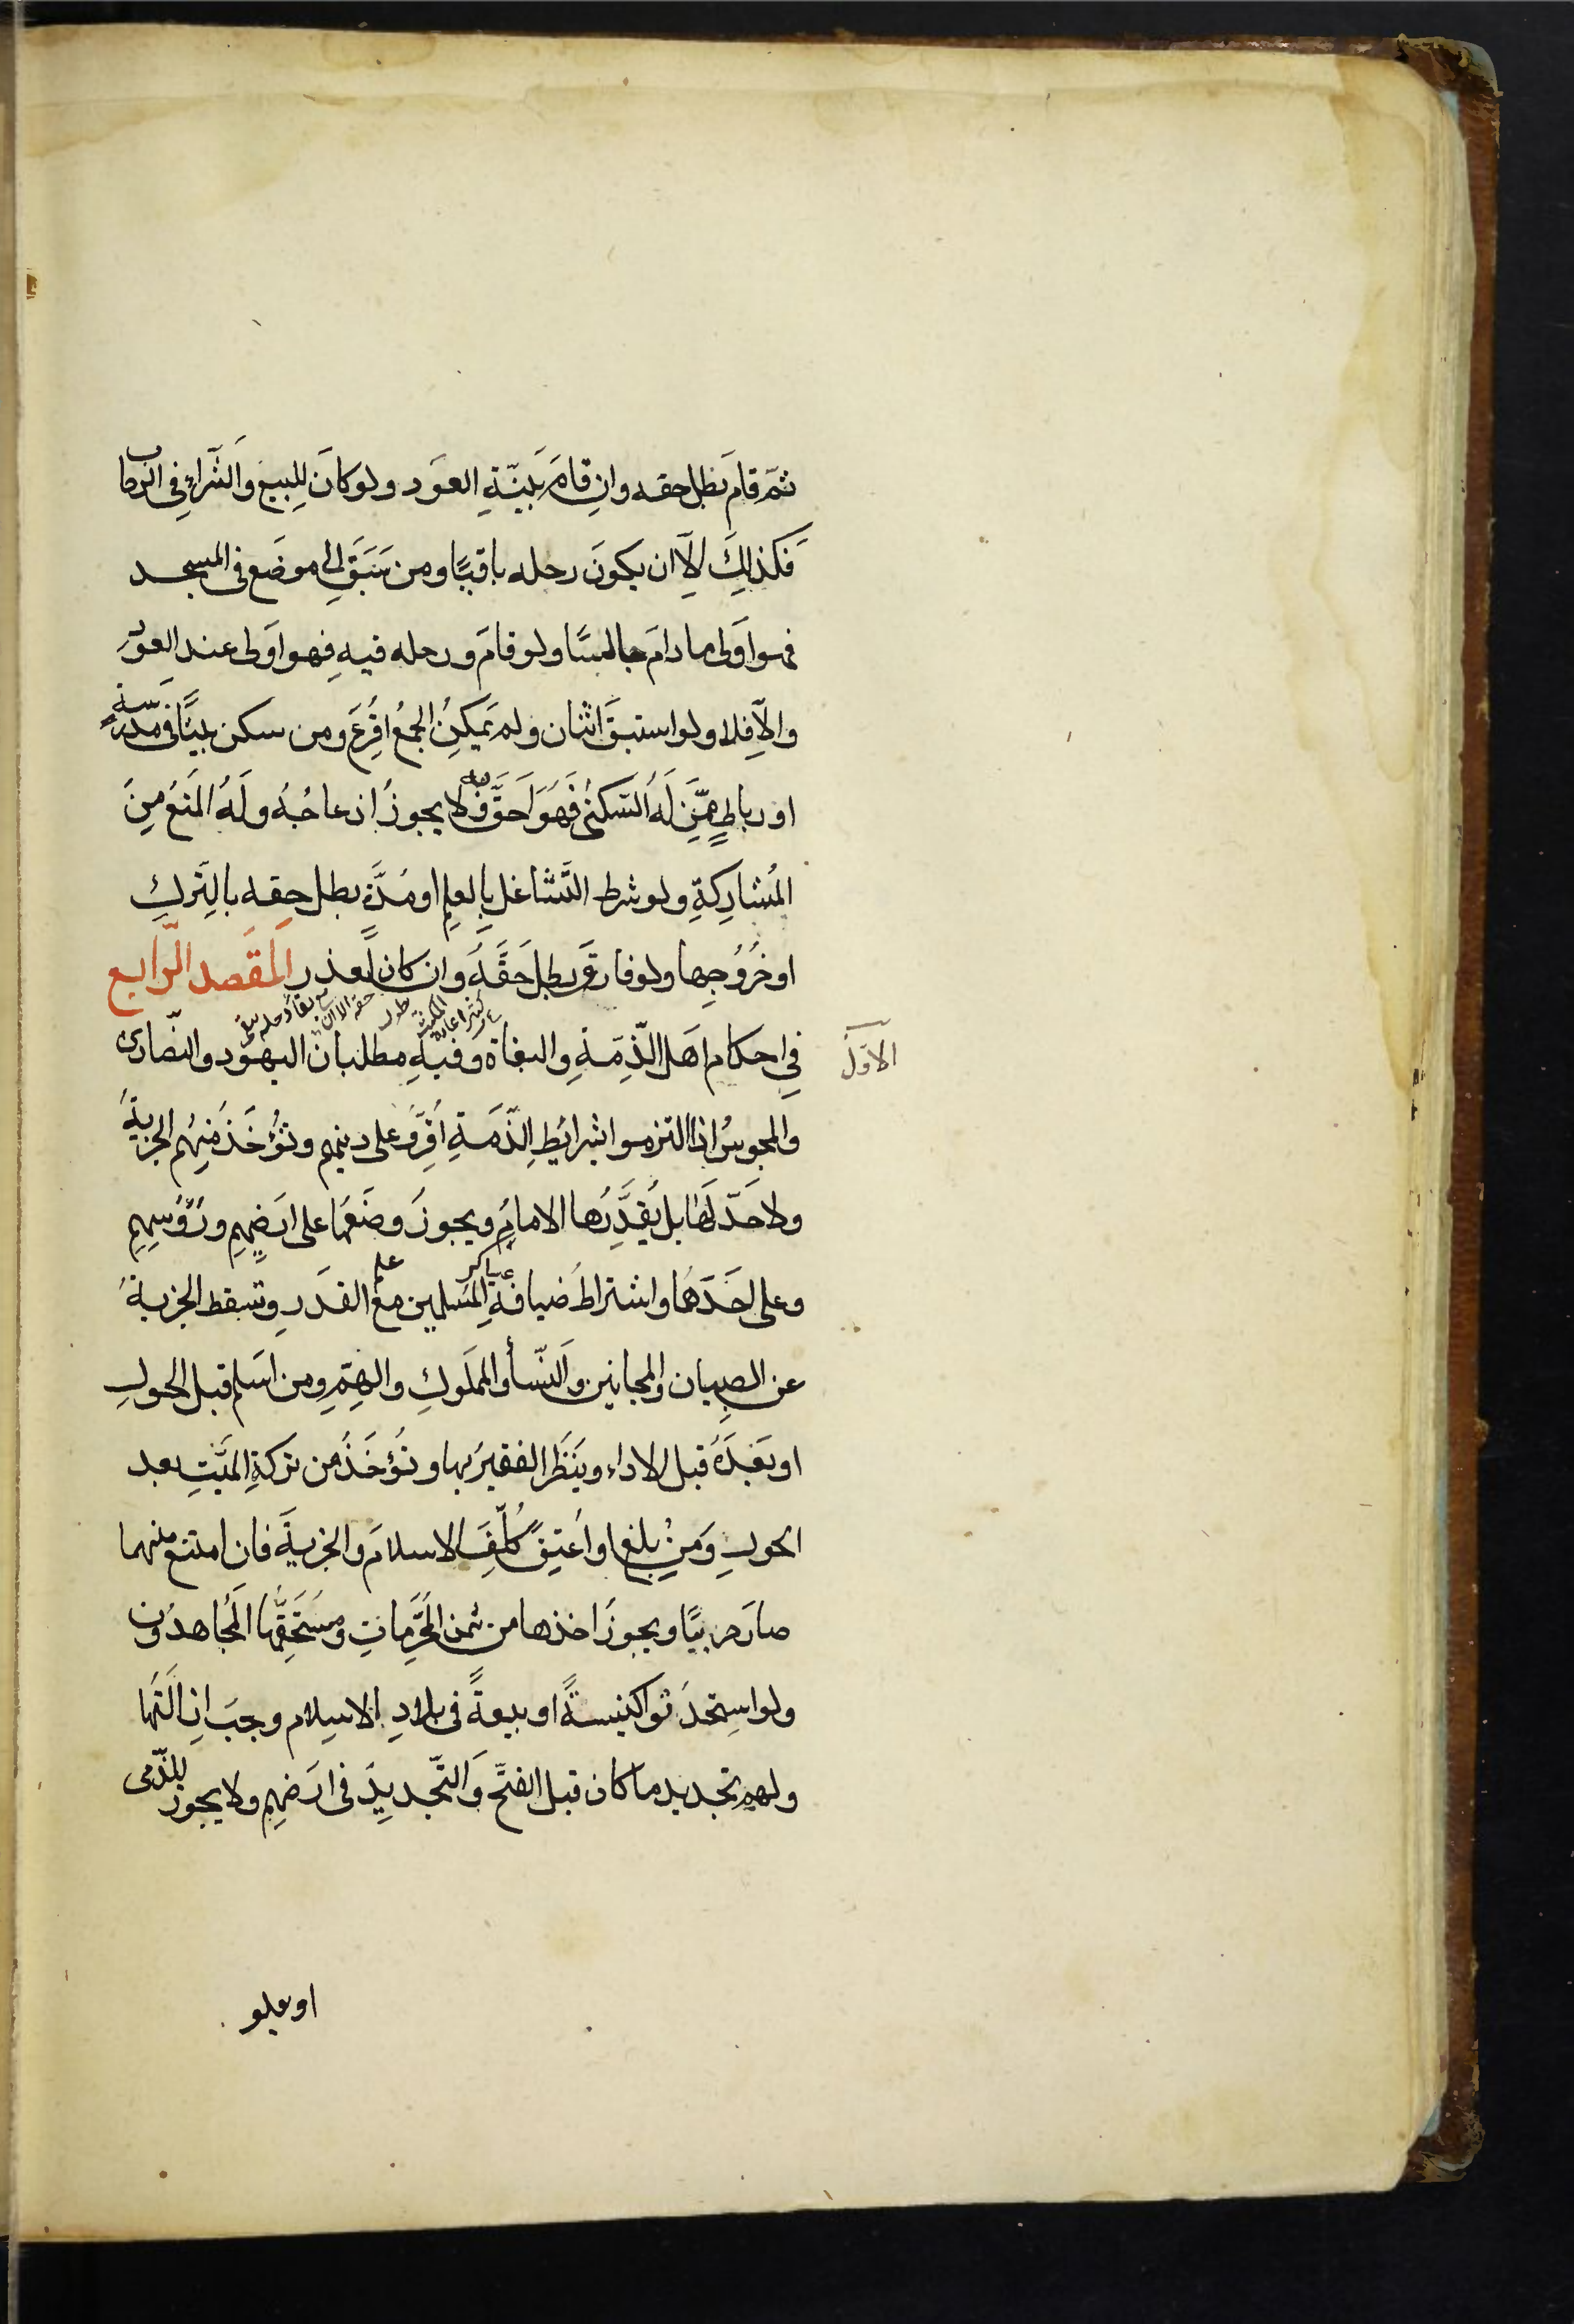 ثمّ قامَ بطل حقه وان قامَ بنيّةِ العَود ولو كانَ للبيع وَالشّراءِ فى الرحاب
فكذالِكَ الّا ان يكونَ رحله باقيًا ومن سَبَقَ الى موضَع فى المسجد
فهو اَولى ما دامَ جالسًا ولو قامَ ورحله فيهِ فهو اَولى عند العَودِ
والّا فلا ولو استبقَ اثنان ولم يَمكِنُ الجمعُ اقُرِعَ ومن سكن بيتًا فى مدرسة
او رباطٍ ممَّن لَهُ السّكنى فَهَوَ اَحَقَّ فلا يجوزُ ازعاجُهُ ولَهُ المَنَعُ مِنَ
المُشاركةِ ولو شرط التَّشاغل بالعلمِ او مدَّةٍ بطل حقه بالتّركِ
او خُرُوجها ولو فارَقَ بطل حَقَّهُ وان كان لعذرٍ المَقَصد الرّابع
فِي احكام اَهَل الذّمّةِ والبغاة وفيهِ مطلبان اليهود والنّصارى
الاَوّل
والمجوسُ اذا التزموا بشرائطِ الذّمَةِ اُقِرَّوُ على دينهم وتُؤخَذُ مِنهُم الجزيةُ
ولا حَدّ لَهَا بل يُقدَّرُها الامامُ ويجوزُ وضَعُها على ارَضِهمِ ورُؤُسِهِمِ
وعلى احَدَهُما واشتراطُ ضيافةِ المَسلمين مع القَدَرِ وتسقط الجزيةُ
علم
عساكر
عن الصِبيان والمجانين وَالنّسأ والممَلوكِ والهِمِّ ومن اسَلم قبل الحولِ
او بَعَدَهُ قبل الاداءِ ويَنَظَر الفقيرُ بها وتُؤخَذُ من تركةِ الميَّتِ بعد
الحولِ وَمن بلغ او اُعتِقَ كُلِّفَ الاسلامَ والجزيةَ فان امتنع منهما
صارَ حربيًّا ويجوزُ اخذها من ثمن المُحَرَّماتِ ومُسَتَحَقُّها المُجاهدُون
ولو استحَدَثوا كنيسةً او بيعةً في بلادِ الاسلام وجبَ ازالَتُها
ولهم تجديد ما كان قبل الفتحِ وَالتّجديد فى ارَضهمِ ولا يجوز للذّمى
ان يعلو